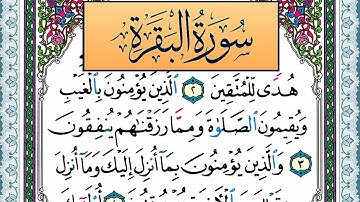 سُورَةُ الْبَقَرَةِ
هُدًى لِّلْمُتَّقِينَ ٢ الَّذِينَ يُؤْمِنُونَ بِالْغَيْبِ
وَيُقِيمُونَ الصَّلَوٰةَ وَمِمَّا رَزَقْنَٰهُمْ يُنفِقُونَ
٣ وَالَّذِينَ يُؤْمِنُونَ بِمَا أُنزِلَ إِلَيْكَ وَمَا أُنزِلَ